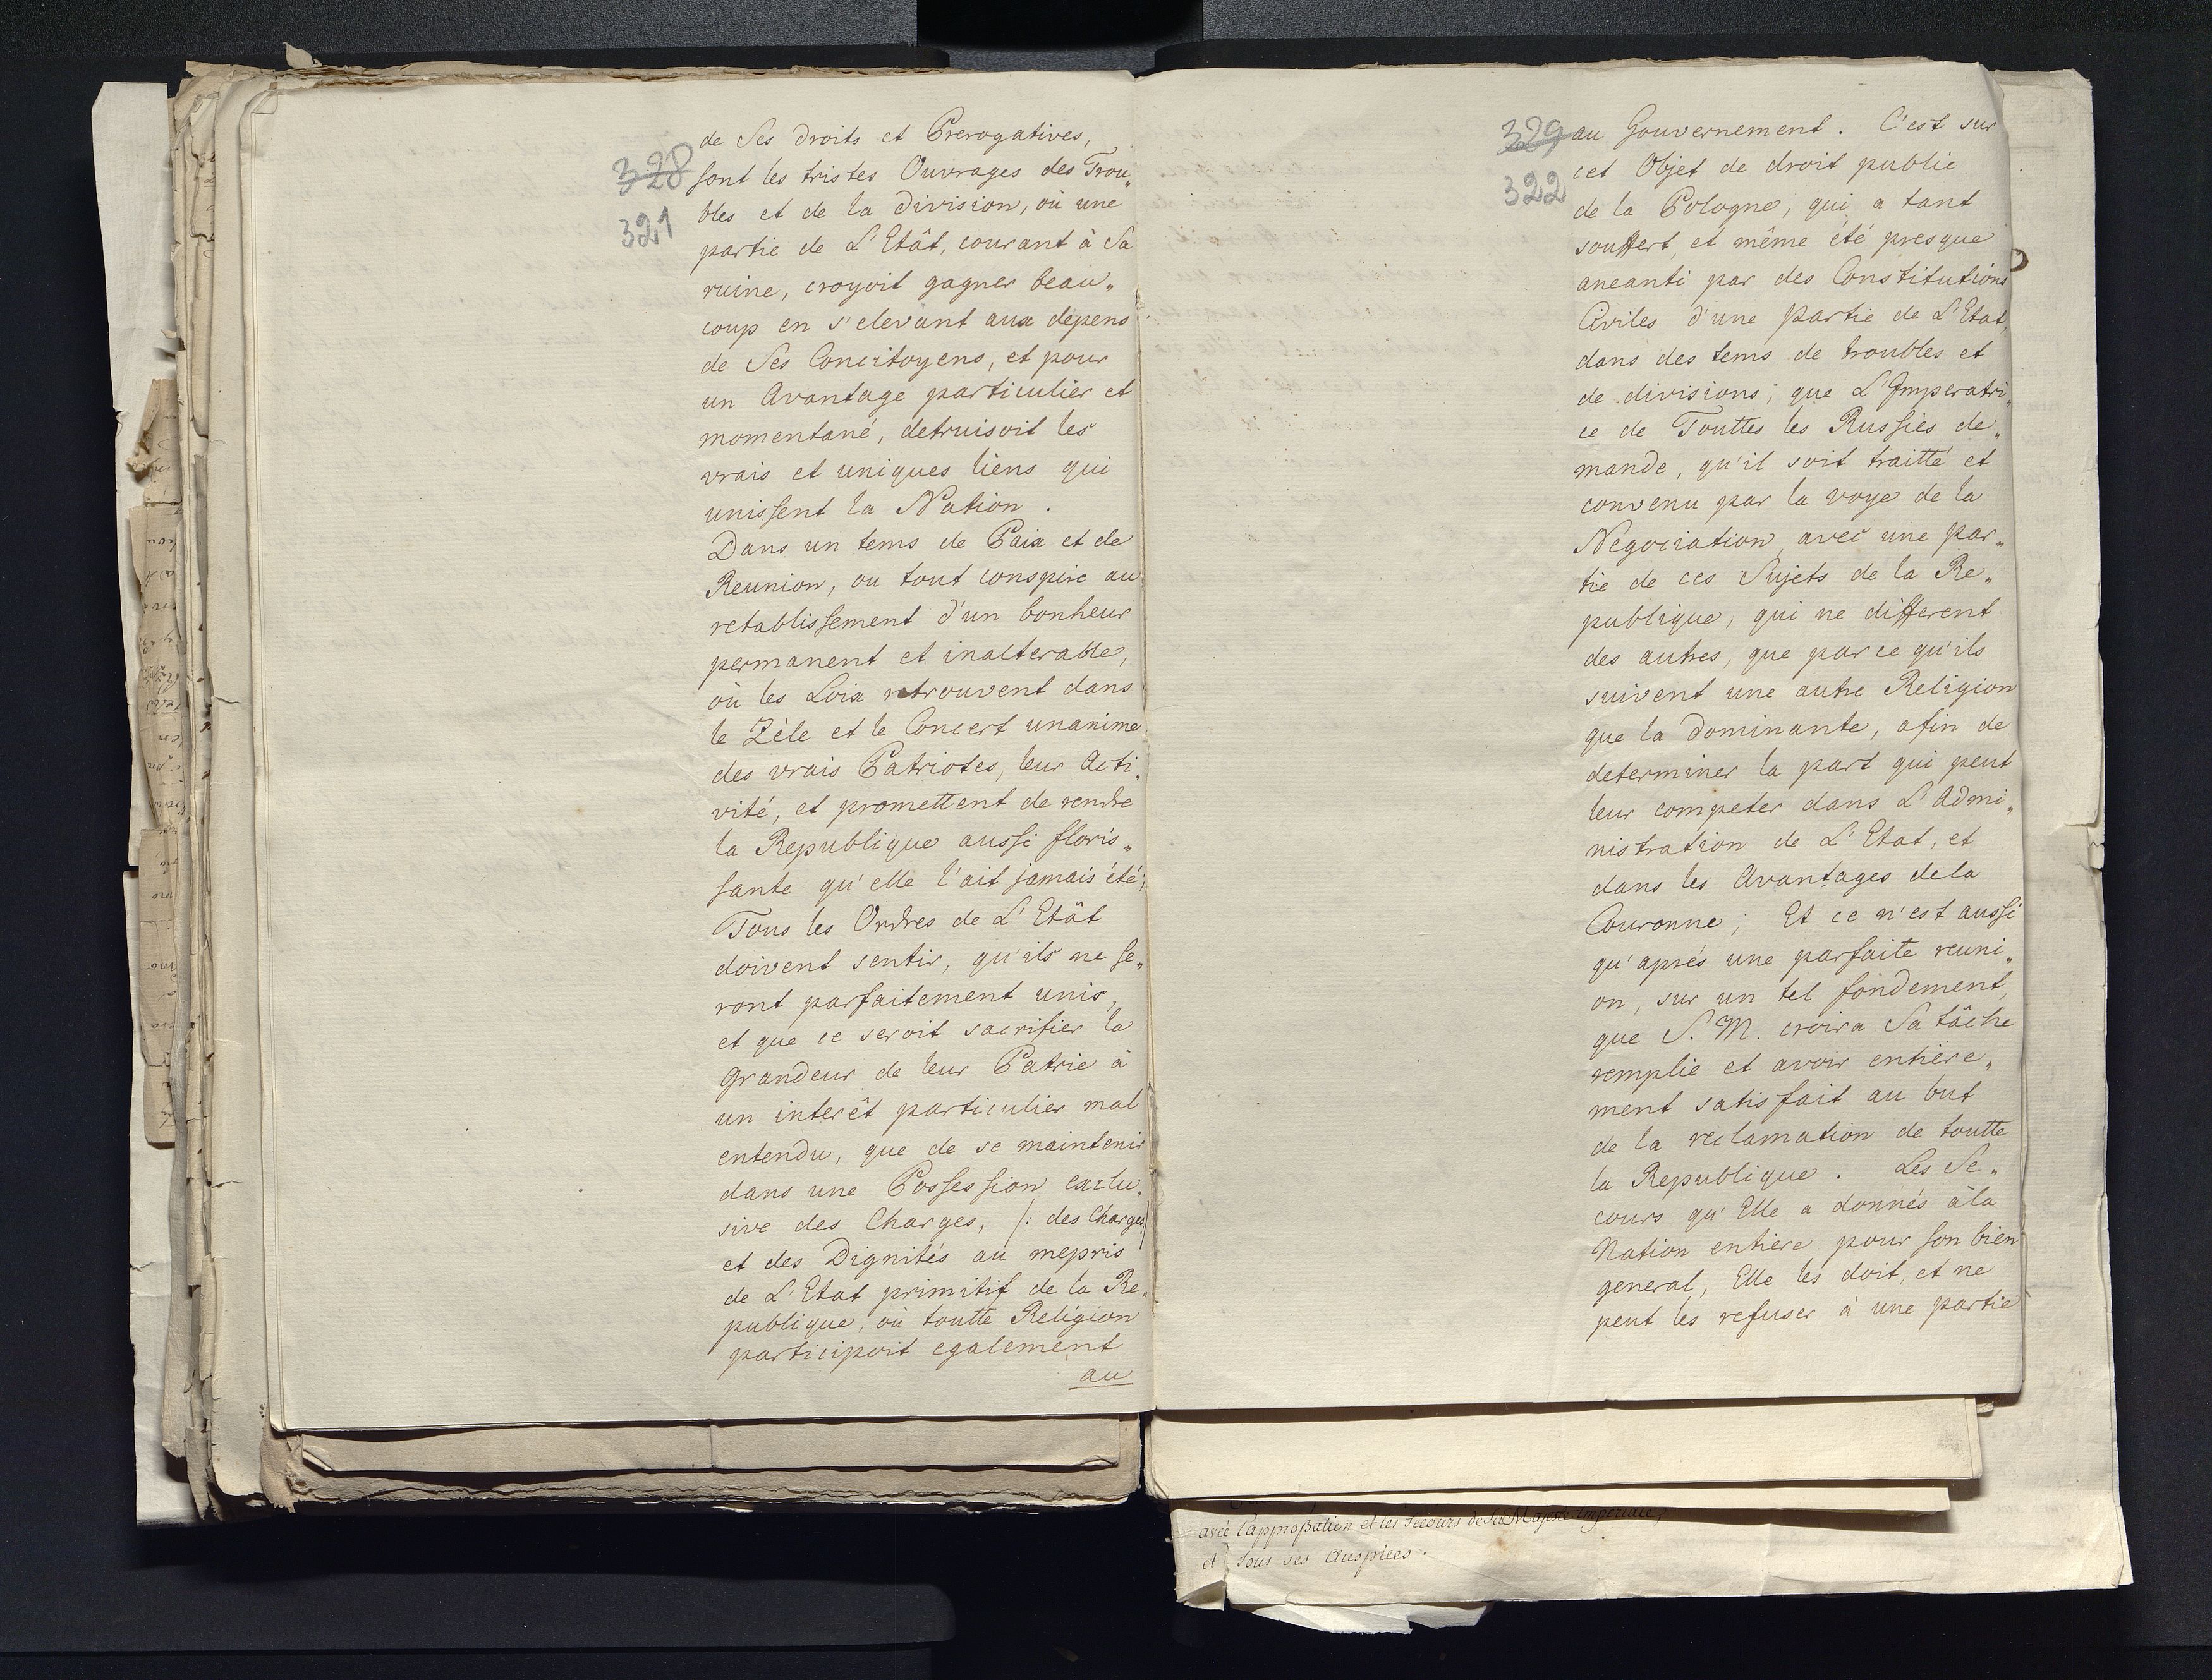 328
321
de Ses droits et Prerogatives,
sont les tristes Ouvrages des Trou„
bles et de la division, où une
partie de L'Etât, courant à Sa
ruine, croyoit gagner beau„
coup en s'elevant aux depens
de Ses Concitoyens, et pour
un Avantage particulier et
momentané, detruisoit les
vrais et uniques liens qui
unissent la Nation.
Dans un tems de Paix et de
Reunion, ou tout conspire au
retablissement d'un bonheur
permanent et inalterable,
où les Loix retrouvent dans
le Zèle et le Concert unanime
des vrais Patriotes, leur Acti„
vité, et promettent de rendre
la Republique aussi floris„
sante qu'elle l'ait jamais été;
Tous les Ordres de L'Etât
doivent sentir, qu'ils ne se„
ront parfaitement unis,
et que ce seroit sacrifier la
grandeur de leur Patrie à
un interêt particulier mal
entendu, que de se maintenir
dans une Possession exclu„
sive des Charges, /: des Charges :/
et des Dignités au mepris
de L'Etat primitif de la Re„
publique, où toutte Religion
participoit egalement
au
329
322
au Gouvernement. C'est sur
cet Objet de droit public
de la Pologne, qui a tant
souffert, et même été presque
aneanti par des Constitutions
Civiles d'une partie de L'Etat,
dans des tems de troubles et
de divisions; que L'Imperatri„
ce de Touttes les Russies de„
mande, qu'il soit traitté et
convenu par la voye de la
Negociation avec une par„
tie de ces Sujets de la Re„
publique, qui ne different
des autres, que parce qu'ils
suivent une autre Religion
que la dominante, afin de
determiner la part qui peut
leur competer dans L'Admi„
nistration de L'Etat, et
dans les Avantages dela
Couronne; Et ce n'est aussi
qu'aprés une parfaite reuni„
on, sur un tel fondement,
que S. M. croira Sa tâche
remplie et avoir entière„
ment satisfait au but
de la reclamation de toutte
la Republique. Les Se„
cours qu'Elle a donnés àla
Nation entière pour son bien
general, Elle les doit, et ne
peut les refuser à une partie
avec l'approbation et les Secours de Sa Majesté Imperiale,
et Sous ses Auspices.